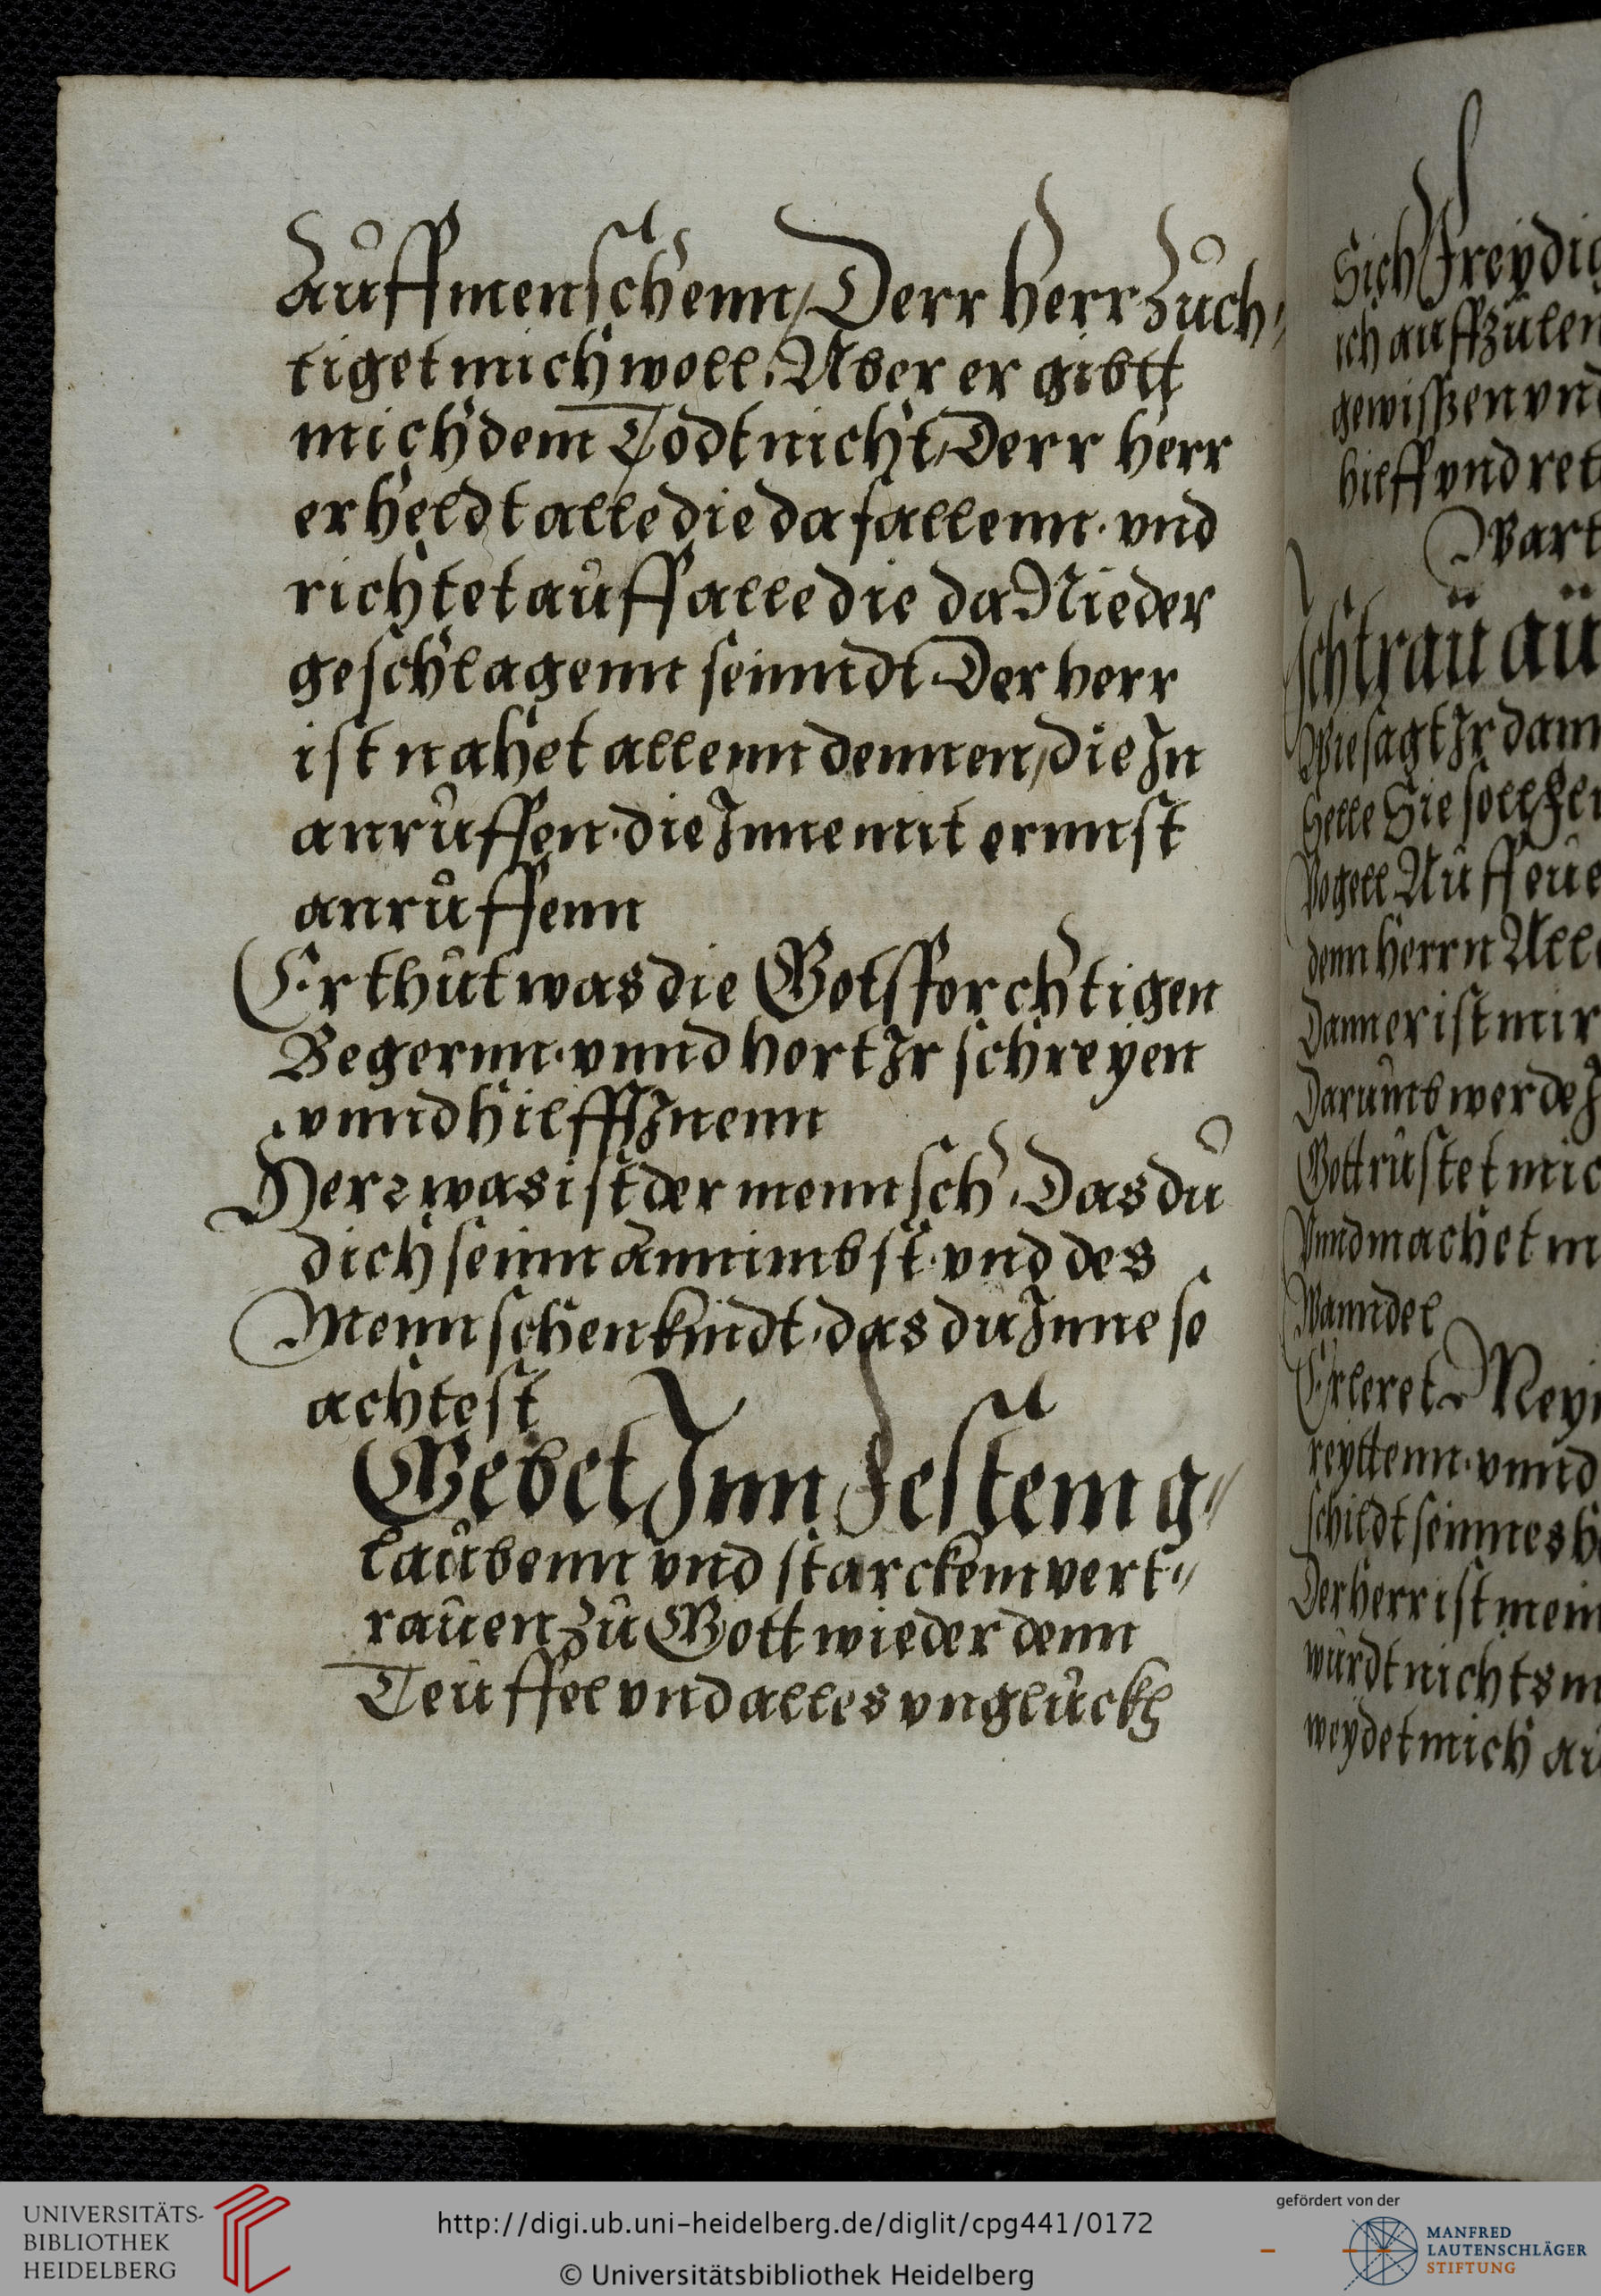 Auff menschenn / Derr herr Zuch„
tiget mich woll. Aber er gibtt
mich dem Todt nicht, Derr herr
erheldt alle die da fallenn. vnd
richtet auff alle die da Nieder
geschlagenn seinndt. Der herr
ist nahet allenn dennen, die In
anruffen. die Inne mit ernnst
anruffenn
Er thut was die Gotsforchtigen
Begernn. vnnd hort Ir schreyen
vnnd hilfft Inenn
Herr was ist der mennsch. Das du
dich seinn annimbst. vnd des
Mennschen kindt. das du Inne so
achtest
Gebet Inn Festem g„
laubenn vnd starckem vert„
rauen zu Gott wieder denn
Teuffel vnd alles vngluckh
Sich Freydig
ich auff zulen
gewissen vnd
hilff vnd ret
Wart
Ich trau au
Wie sagt Ir dann
Selle Sie soll
Vogell Auff eue
denn herrn All
Dann er ist mir
Darumb werde I
Gott rustet mic
Vnnd machet m
Wanndel
Erleret Mey
reyttenn. vnnd
schildt seinnes h
Der herr ist mein
wurdt nichts m
weydet mich au
UNIVERSITÄTS-
BIBLIOTHEK
HEIDELBERG
http://digi.ub.uni-heidelberg.de/diglit/cpg441/0172
© Universitätsbibliothek Heidelberg
gefördert von der
MANFRED
LAUTENSCHLÄGER
STIFTUNG